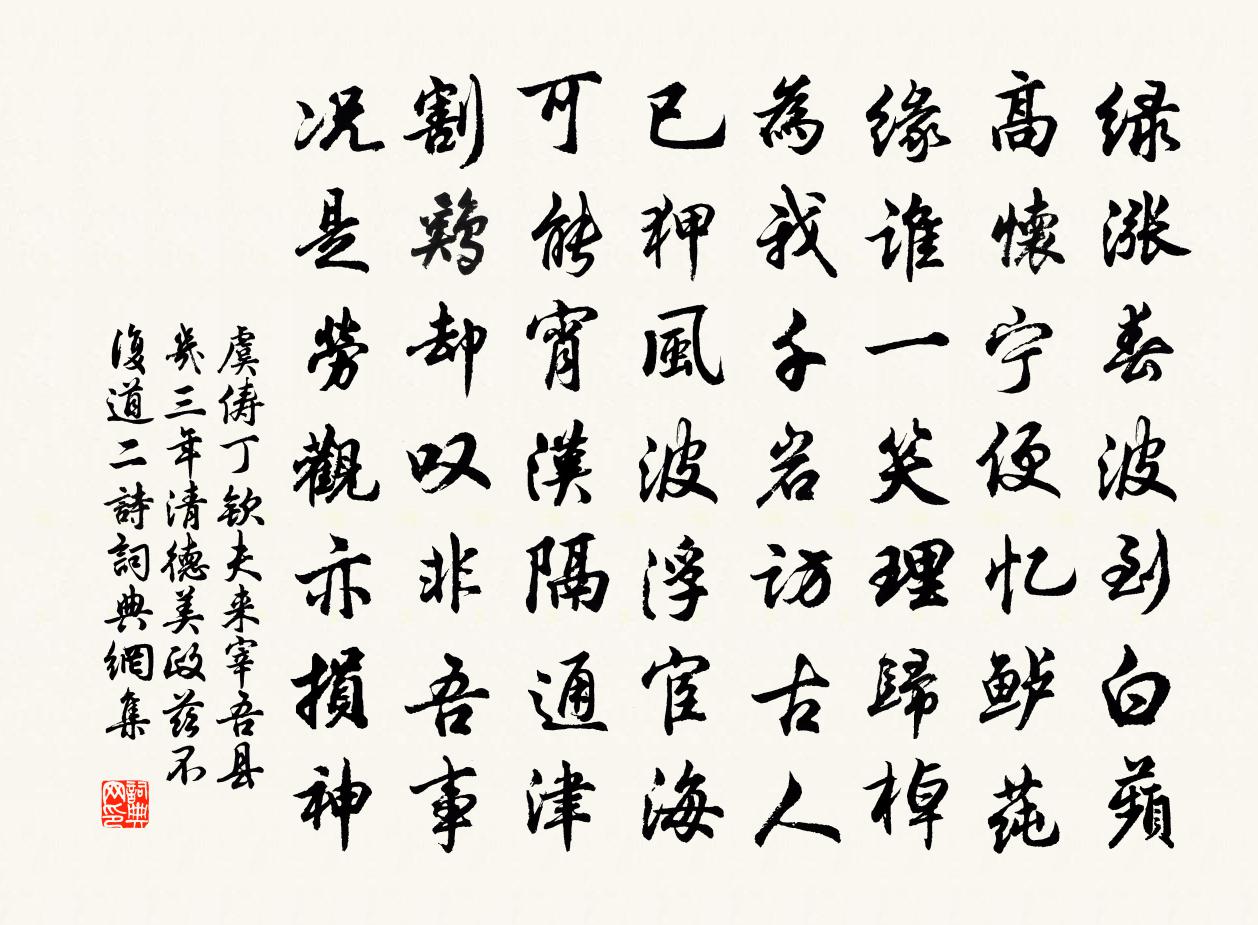 绿涨春波到白蘋
高懷宁便忆鲈莼
缘谁一笑理歸棹
為我千岩访古人
已狎風波浮宦海
可能霄漢隔通津
割鷄却叹非吾事
况是勞觀亦損神
虞俦丁钦夫来宰吾县
幾三年清德美政兹不
復道二詩詞典網集
詞典网印